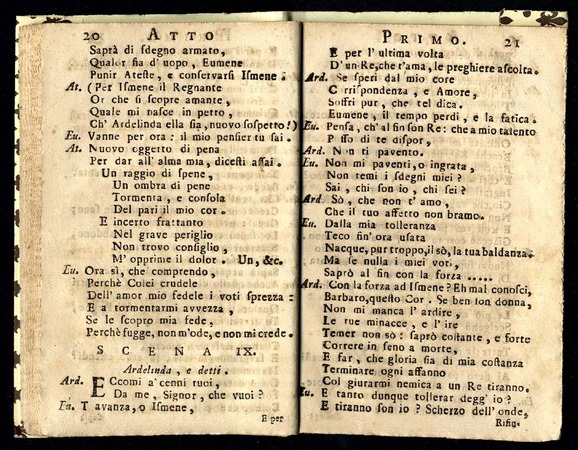 20 ATTO
Saprà di sdegno armato,
Qualor sia d'uopo, Eumene
Punir Ateste, e conservarsi Ismene.
At. (Per Ismene il Regnante
Or che si scopre amante,
Quale mi nasce in petro,
Ch' Ardelinda ella sia, nuovo sospetto!)
Eu. Vanne per ora: il mio pensier tu sai.
At. Nuovo oggetto di pena
Per dar all' alma mia, dicesti assai.
Un raggio di spene,
Un ombra di pene
Tormenta, e consola
Del pari il mio cor.
E incerto frattanto
Nel grave periglio
Non trovo consiglio,
M' opprime il dolor. Un, &c.
Eu. Ora sì, che comprendo,
Perchè Colei crudele
Dell' amor mio fedele i voti sprezza:
E a tormentarmi avvezza,
Se le scopro mia fede,
Perchè fugge, non m'ode, e non mi crede.
SCENA IX.
Ardelinda, e detti.
Ard. ECcomi a' cenni tuoi,
Da me, Signor, che vuoi?
Eu. T avanza, o Ismene,
E per
PRIMO. 21
E per l' ultima volta
D' un Re, che t'ama, le preghiere ascolta.
Ard. Se speri dal mio core
Corrispondenza, e Amore,
Soffri pur, che tel dica.
Eumene, il tempo perdi, e la fatica.
Eu. Pensa, ch' al fin son Re: che a mio talento
Posso di te dispor,
Ard. Non ti pavento.
Eu. Non mi paventi, o ingrata,
Non temi i sdegni miei?
Sai, chi son io, chi sei?
Ard. Sò, che non t' amo,
Che il tuo affetto non bramo.
Eu. Dalla mia tolleranza
Teco fin' ora usata
Nacque, pur troppo, il sò, la tua baldanza.
Ma se nulla i miei voti,
Saprò al fin con la forza .....
Ard. Con la forza ad Ismene? Eh mal conosci,
Barbaro, questo Cor. Se ben son donna,
Non mi manca l' ardire,
Le tue minacce, e l' ire
Temer non sò: saprò costante, e forte
Correre in seno a morte,
E far, che gloria sia di mia costanza
Terminare ogni affanno
Col giurarmi nemica a un Re tiranno.
Eu. E tanto dunque tollerar degg' io?
E tiranno son io? Scherzo dell' onde,
Rifiu-